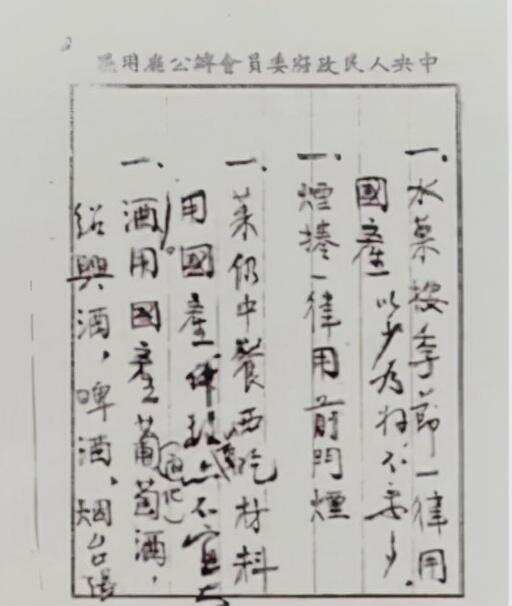 中央人民政府委員會辦公廳用箋
一、水菓按季節一律用
國產以少为好不要
一、煙捲一律用前門煙
一、菜仍中餐西吃材料
用國產 不宜
一、酒用國產葡萄酒，
(通化)
紹興酒，啤酒，烟台張